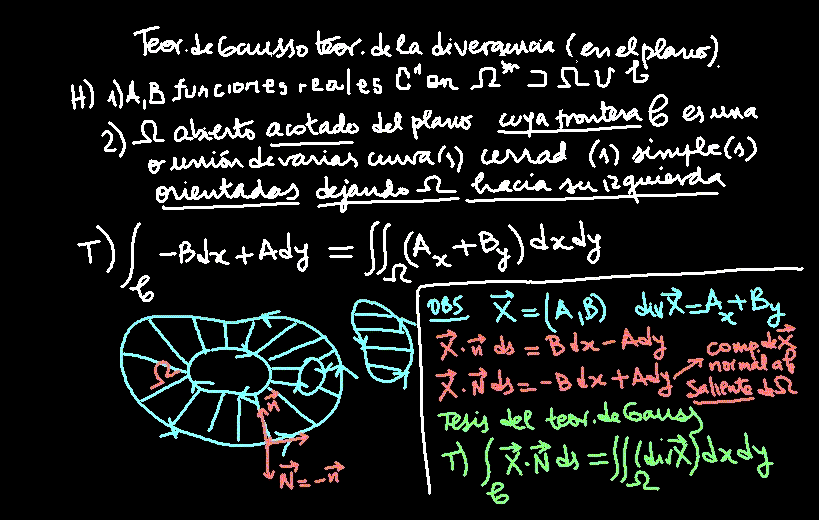 Teor. de Gauss o teor. de la divergencia (en el plano).
H) 1) A, B funciones reales C¹ en Ω* ⊃ Ω ∪ C
2) Ω abierto acotado del plano cuya frontera C es una
o unión de varias curva(s) cerrad (s) simple(s)
orientadas dejando Ω hacia su izquierda
T) ∫_C -Bdx + Ady = ∬_Ω (A_x + B_y) dxdy
OBS X⃗ = (A,B) div X⃗ = A_x + B_y
X⃗·n⃗ ds = Bdx - Ady
X⃗·N⃗ ds = -Bdx + Ady → comp de X⃗
normal a C
saliente de Ω
Tesis del teor. de Gauss
T) ∫_C X⃗·N⃗ ds = ∬_Ω (div X⃗) dxdy
Ω
n⃗
N⃗ = -n⃗